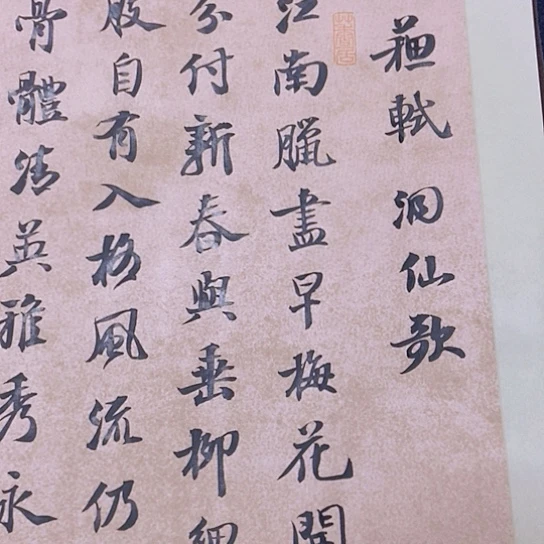 蘓軾 洞仙歌
江南臘盡早梅花開
分付新春與垂柳細
般自有入格風流仍
骨體清英雅秀永